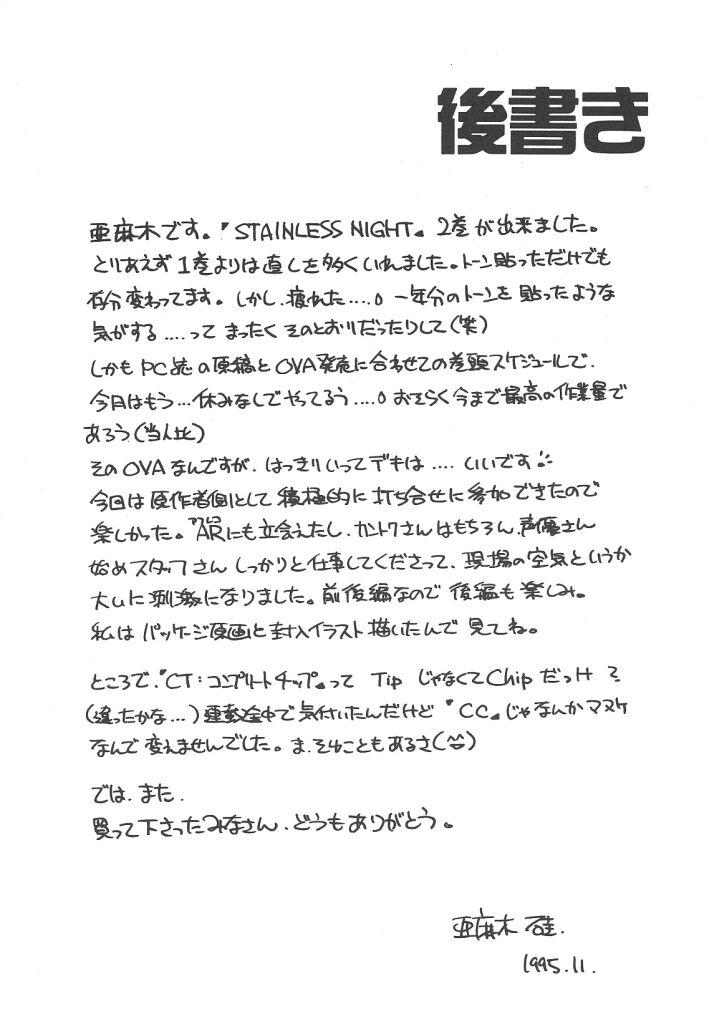 後書き
亜麻木です。『STAINLESS NIGHT』2巻が出来ました。
とりあえず1巻よりは直しを多くいれました。トーン貼っただけでも
百分変わってます。しかし、疲れた....。一年分のトーンを貼ったような
気がする....って まったく そのとおりだったりして(笑)
しかもPC誌の原稿とOVA発売に合わせての巻頭スケジュールで、
今月はもう...休みなしでやってるう....。おそらく今まで最高の作業量で
あろう(当人比)
そのOVAなんですが、はっきりいってデキは....いいです
今回は原作者側として積極的に打ち合せに参加できたので
楽しかった。ARにも立会えたし、カントクさんはもちろん、声優さん
始めスタッフさん しっかりと仕事してくださって、現場の空気というか
大いに刺激になりました。前後編なので 後編も楽しみ。
私は パッケージ原画と封入イラスト描いたんで 見てね。
ところで、『CT:コンプリートチップ』って Tip じゃなくてChip だっけ?
(違ったかな...)運転途中で気付いたんだけど『CC』じゃなんかマヌケ
なんで変えませんでした。ま、そんなこともあるさ(^^)
では、また、
買って下さったみなさん、どうもありがとう。
亜麻木 硅.
1995.11.